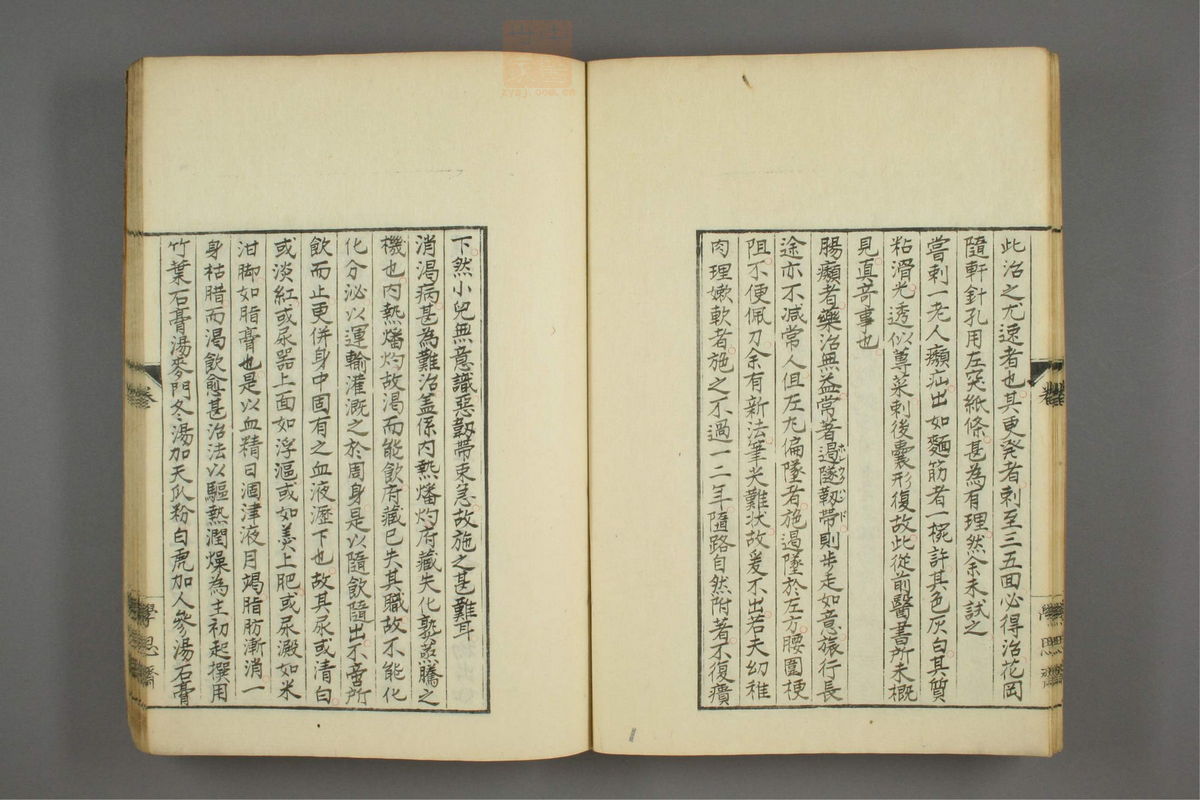 此治之尤速者也其更発者刺至三五回必得治花岡
隨軒針孔用左突紙條甚為有理然余未試之
嘗刺一老人癩疝出如麵筋者一椀許其色灰白其質
粘滑光透似蓴菜刺後囊形復故此從前醫書所未概
見真奇事也
腸㿗者藥治無益常著遏墜靱帶則步走如意旅行長
途亦不減常人但左尢偏墜者施遏墜於左方腰圍梗
阻不便佩刀余有新法筆尖難状故爰不出若夫幼稚
肉理嫩軟者施之不過一二年隨路自然附著不復㿉
下然小兒無意識惡靱帶束急故施之甚難耳
消渴病甚為難治蓋係內熱燔灼府藏失化熟蒸騰之
機也內熱燔灼故渴而能飲府藏已失其職故不能化
化分泌以運輸灌溉之於周身是以隨飲隨出不啻所
飲而止更併身中固有之血液瀝下也故其尿或清白
或淡紅或尿器上面如浮漚或如羹上肥或尿澱如米
泔脚如脂膏也是以血精日涸津液月竭脂肪漸消一
身枯腊而渴飲愈甚治法以驅熱潤燥為主初起撰用
竹葉石膏湯麥門冬湯加天瓜粉白虎加人參湯石膏
卷
學思齋
zysj.com.cn